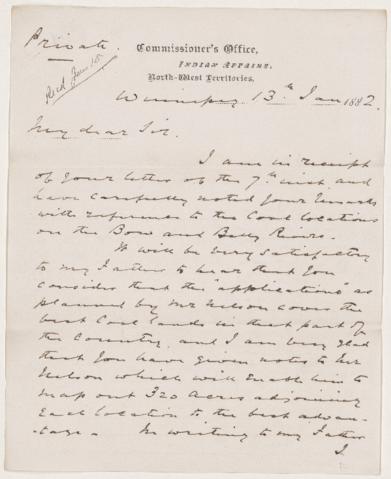 Private.
Recd Jan 18
Commissioner's Office,
INDIAN AFFAIRS,
North-West Territories.
Winnipeg 13th Jan 1882.
My dear Sir,
I am in receipt
of your letter of the 7th inst. and
have carefully noted your remarks
with reference to the Coal locations
on the Bow and Belly Rivers.
It will be very satisfactory
to my Father to hear that you
consider that the "applications" as
planned by Mr Nelson cover the
best Coal lands in that part of
the Country, and I am very glad
that you have given notes to Mr
Nelson which will enable him to
map out 320 acres adjoining
each location to the best advan-
-tage. In writing to my Father
I